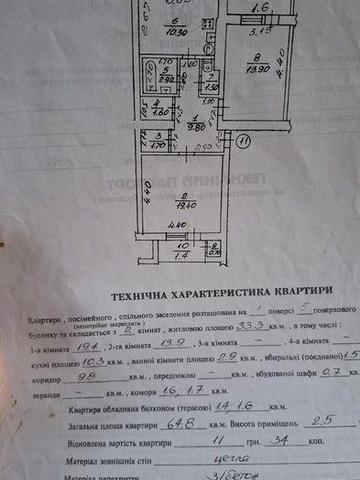 1.6
6
10.30
3.15
8
13.90
4.40
1.70
5
2.90
7
1.50
4
1.60
1.00
1
9.80
3
1.70
11
2.90
2
19.40
4.40
4.40
10
1.4
9
0.70
ТЕХНІЧНА ХАРАКТЕРИСТИКА КВАРТИРИ
Квартира , посімейного , спільного заселення розташована на 1 поверсі 5 поверхового
(непотрібне закреслити)
будинку та складається з 2 кімнат , житловою площею 33.3 кв.м , в тому числі :
1-а кімната 19.4 , 2-га кімната 13.9 , 3-я кімната – , 4-а кімната –
кухні площею 10.3 кв.м , ванної кімнати площею 2.9 кв.м., вбиральні (поєднаної) 1.5
коридор 9.8 кв.м., передпокою – кв.м., вбудованої шафи 0.7 кв.
веранди – кв.м., комори 1.6; 1.7 кв.м.
Квартира обладнана балконом (терасою) 1.4, 1.6 кв.м.
Загальна площа квартири 64.8 кв.м. Висота приміщень 2.5
Відновлена вартість квартири 11 грн. 34 коп.
Матеріал зовнішніх стін цегла
Матеріал перекриття з/бетон